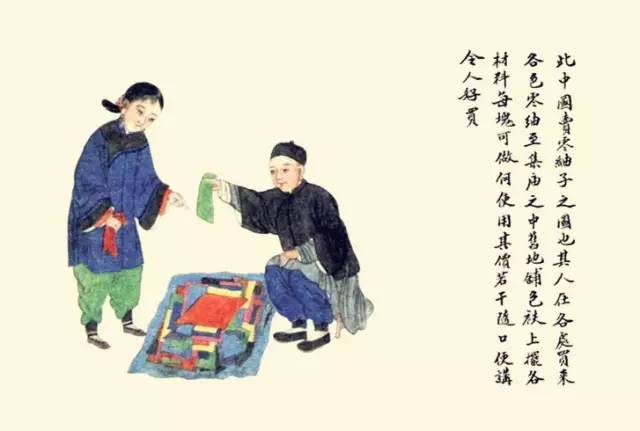 此中國賣零紬子之圖也其人在各處買來
各色零紬至集庙之中舊地舖色袱上擺各
材料每塊可做何使用其價若干隨口便講
令人好買